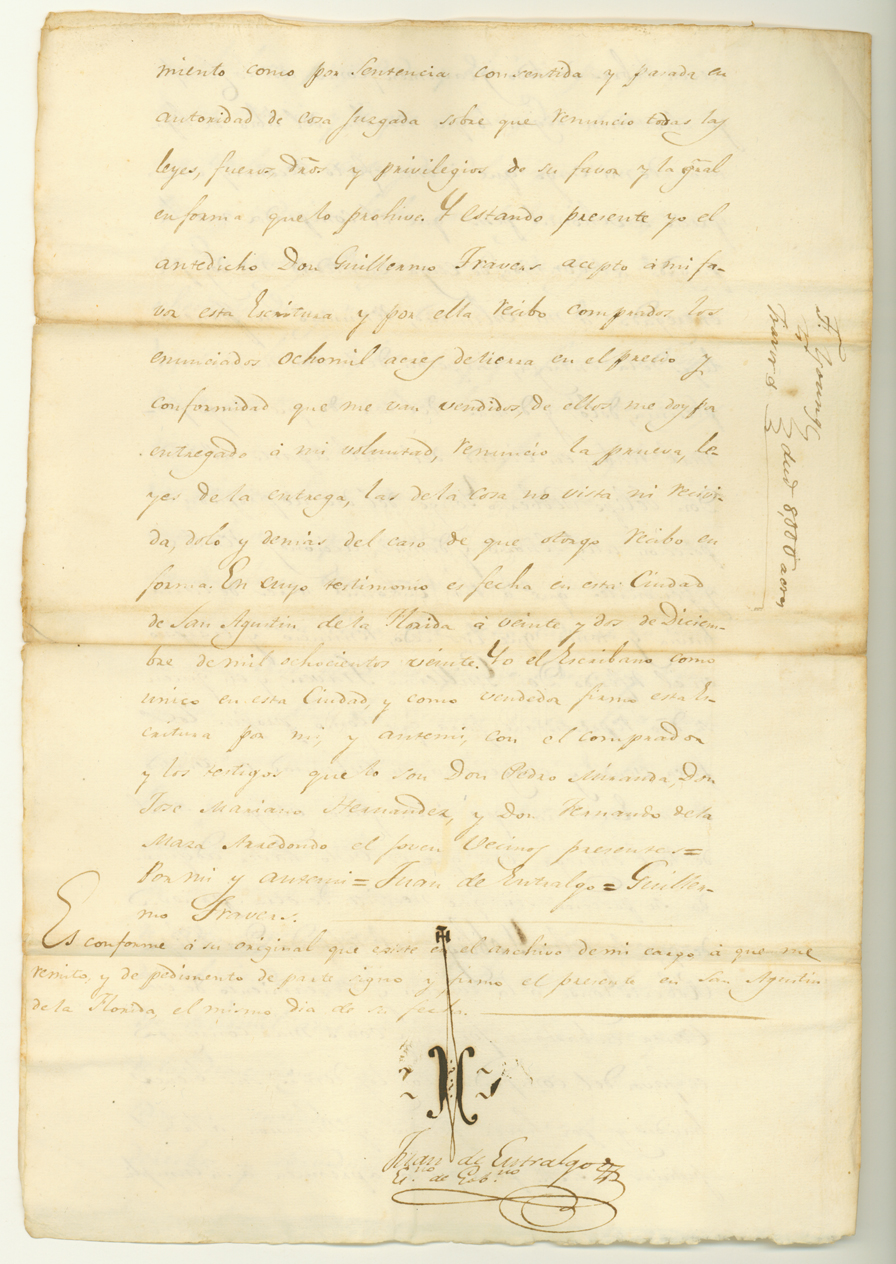 miento como por Sentencia consentida y pasada en
autoridad de cosa Juzgada sobre que renuncio todas las
leyes, fueros dr̃os y privilegios de su favor y la gr̃al
en forma que lo prohive. Y Estando presente yo el
antedicho Don Guillermo Travers acepto á mi fa-
vor esta Escritura y por ella recibo comprados los
enunciados ochomil acres de tierra en el precio y
conformidad que me van vendidos, de ellos me doy pa
entregado á mi voluntad, renuncio la prueva, le-
yes de la entrega, las de la cosa no vista ni recivi-
da, dolo y demas del caso de que otorgo recibo en
forma. En cuyo testimonio es fecha en esta Ciudad
de San Agustin de la Florida á veinte y dos de Diciem-
bre de mil ochocientos veinte. Yo el Escribano como
unico en esta Ciudad, y como vendedor firmo esta Es-
critura por mi, y antemi, con el comprador
y los testigos que lo son Don Pedro Miranda, Don
Jose Mariano Hernandez, y Don Fernando de la
Maza Arredondo el joven Vecinos presentes=
Por mi y antemi= Juan de Entralgo= Guiller-
mo Travers.
Es conforme á su original que existe en el archivo de mi cargo á que me
remito, y de pedimento de parte signo y firmo el presente en San Agustin
de la Florida, el mismo dia de su fecha.
Juan de Entralgo
Es.no de Gob.no
F. Young
to
Travers
deed 8,000 acres